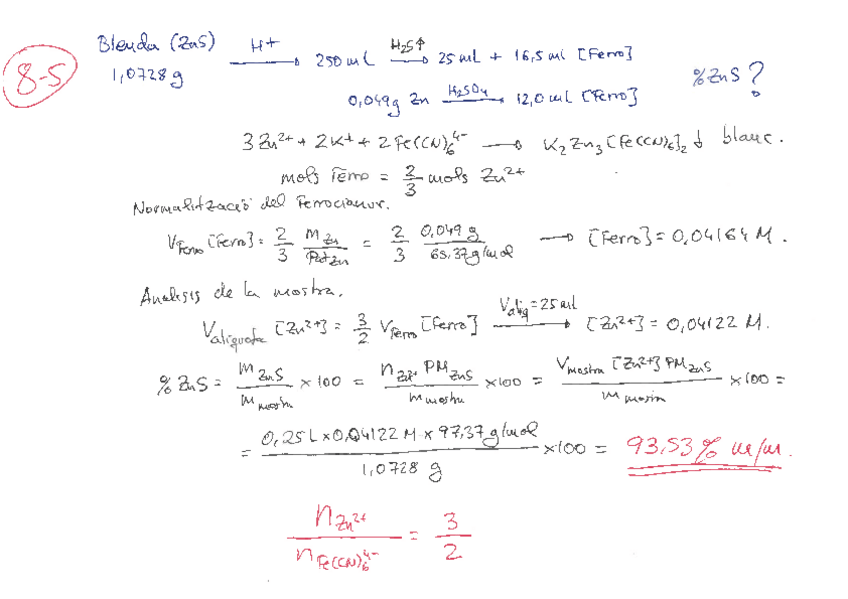 8-5
Blenda (ZnS) H+ → 250 mL H2S↑ → 25 mL + 16,5 ml [Ferro]
1,0728 g
0,049g Zn H2SO4 → 12,0 mL [Ferro]
% ZnS?
3 Zn²⁺ + 2K⁺ + 2 Fe(CN)₆⁴⁻ → K₂Zn₃[Fe(CN)₆]₂↓ blanc.
mols Ferro = 2/3 mols Zn²⁺
Normalització del Ferrocianur.
V_Ferro [Ferro] = 2/3 m_Zn/Pat_Zn = 2/3 0,049 g/65,37g/mol → [Ferro] = 0,04164 M.
Analisis de la mostra.
V_aliquota [Zn²⁺] = 3/2 V_Ferro [Ferro] V_aliq=25 ml → [Zn²⁺] = 0,04122 M.
% ZnS = m_ZnS/m_mostra × 100 = n_Zn²⁺ PM_ZnS/m_mostra × 100 = V_mostra [Zn²⁺] PM_ZnS/m_mostra × 100 =
= 0,25 L × 0,04122 M × 97,37 g/mol/1,0728 g × 100 = 93,53 % m/m.
n_Zn²⁺/n_Fe(CN)₆⁴⁻ = 3/2